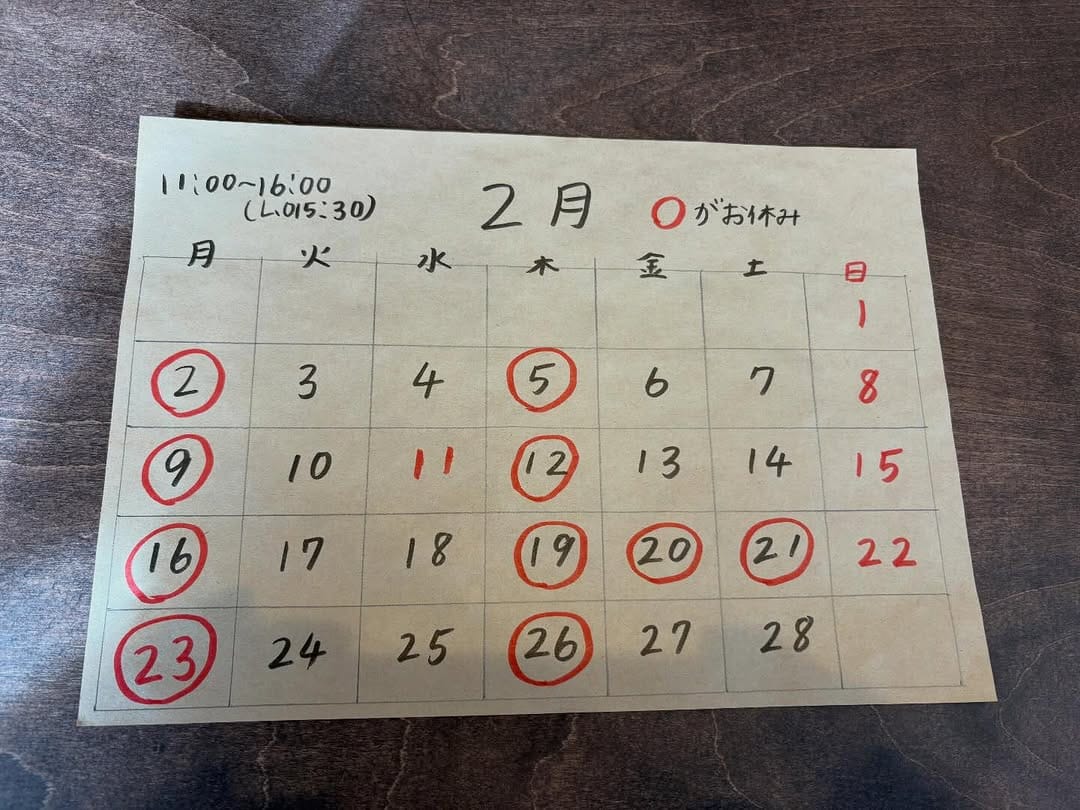 11:00~16:00
(L.O15:30)
2月
○がお休み
月 火 水 木 金 土 日
1
2 3 4 5 6 7 8
9 10 11 12 13 14 15
16 17 18 19 20 21 22
23 24 25 26 27 28